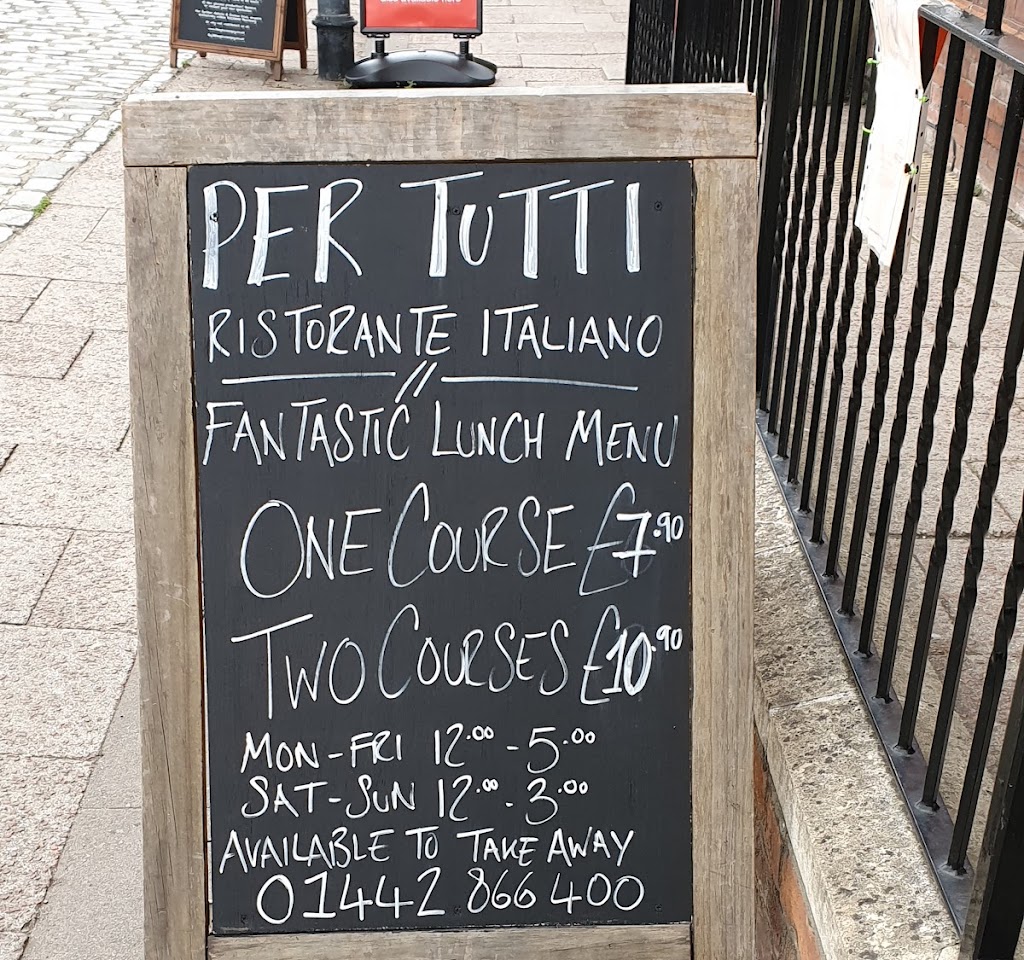 PER TUTTI
RISTORANTE ITALIANO
FANTASTIC LUNCH MENU
ONE COURSE £7.90
TWO COURSES £10.90
MON-FRI 12.00 - 5.00
SAT-SUN 12.00 - 3.00
AVAILABLE TO TAKE AWAY
01442 866 400